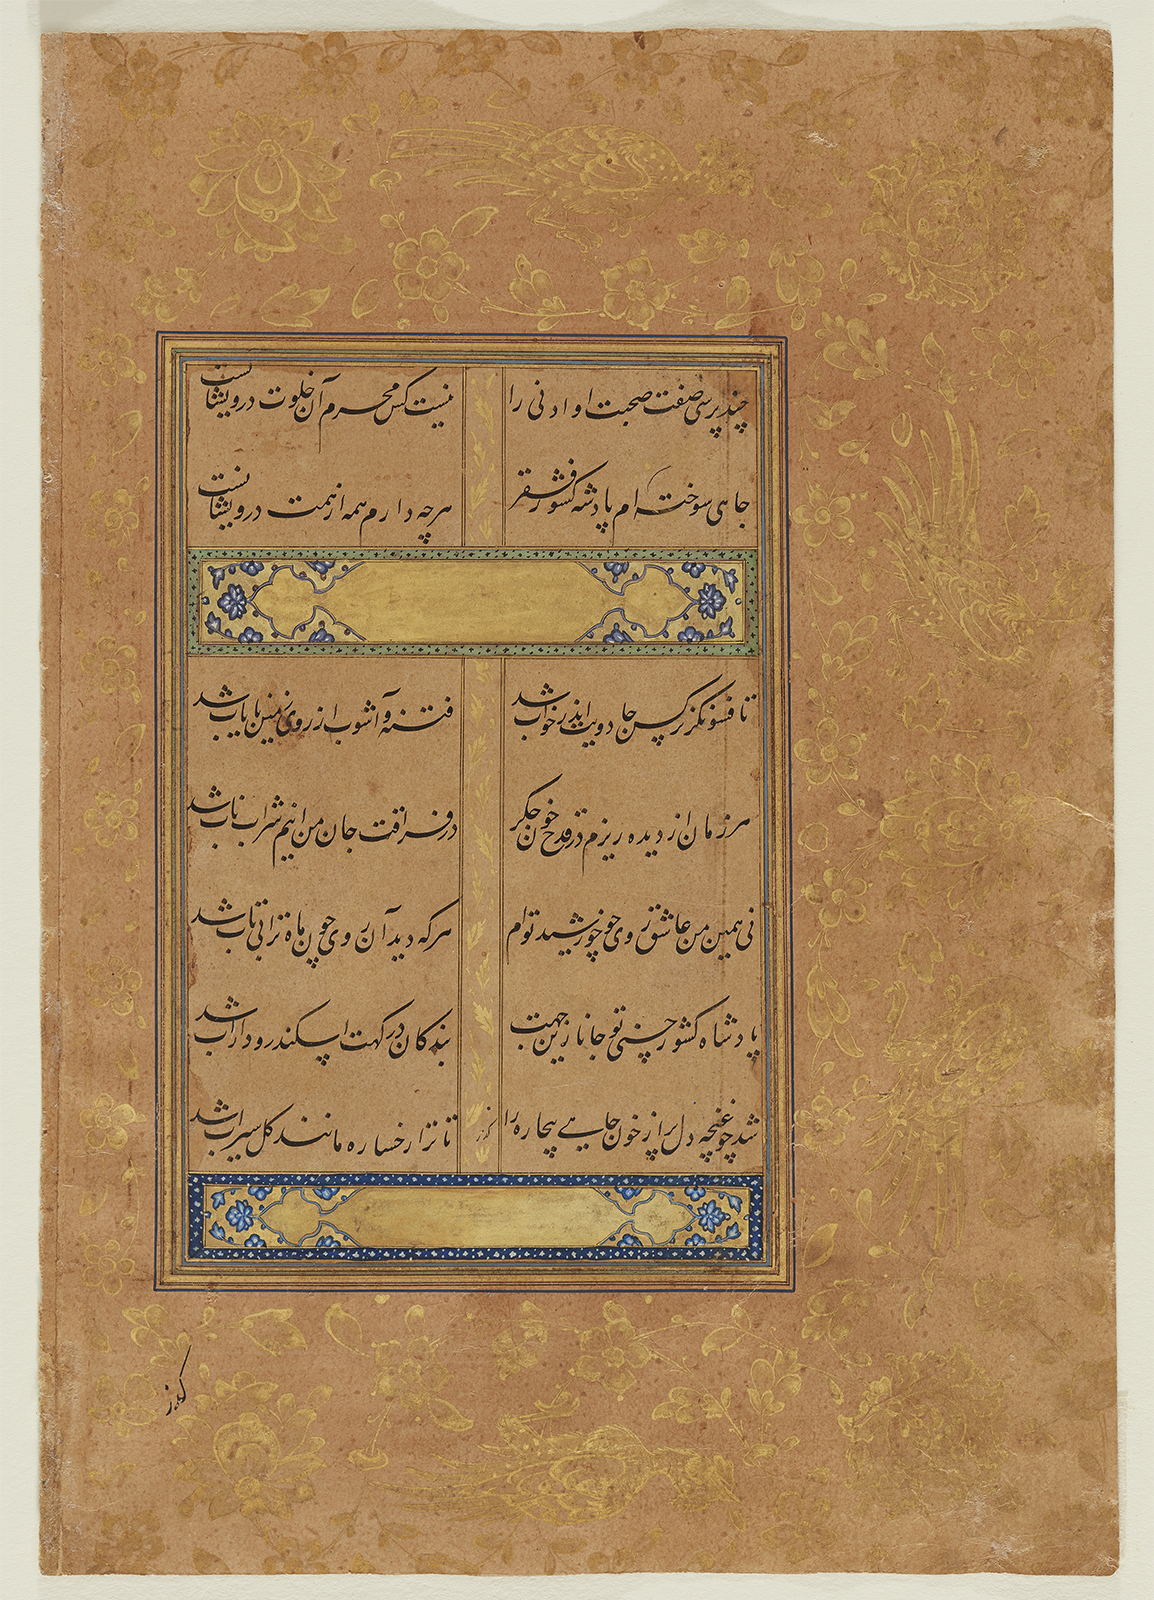 چند پرسی صفت صحبت او ادنی را
نیست کس محرم آن خلوت درویشانست
جاهی سوخته ام پادشه کشور فقر
هرچه دارم همه از همت درویشانست
تا فسونگر نرگس جادویت اندر خواب شد
فتنه و آشوب از روی زمین نایاب شد
هر زمان از دیده ریزم در قدح خون جگر
در فراقت جان من اینم شراب ناب شد
نی همین من عاشق روی چو خورشید توام
هر که دید آن روی چون ماه ترا بی تاب شد
پادشاه کشور حسنی تو جانا زین جهت
بندگان درگهت اسکندر و داراب شد
شد چو غنچه دل پر از خون جاهی بیچاره را
تا ترا رخساره مانند گل سیراب شد